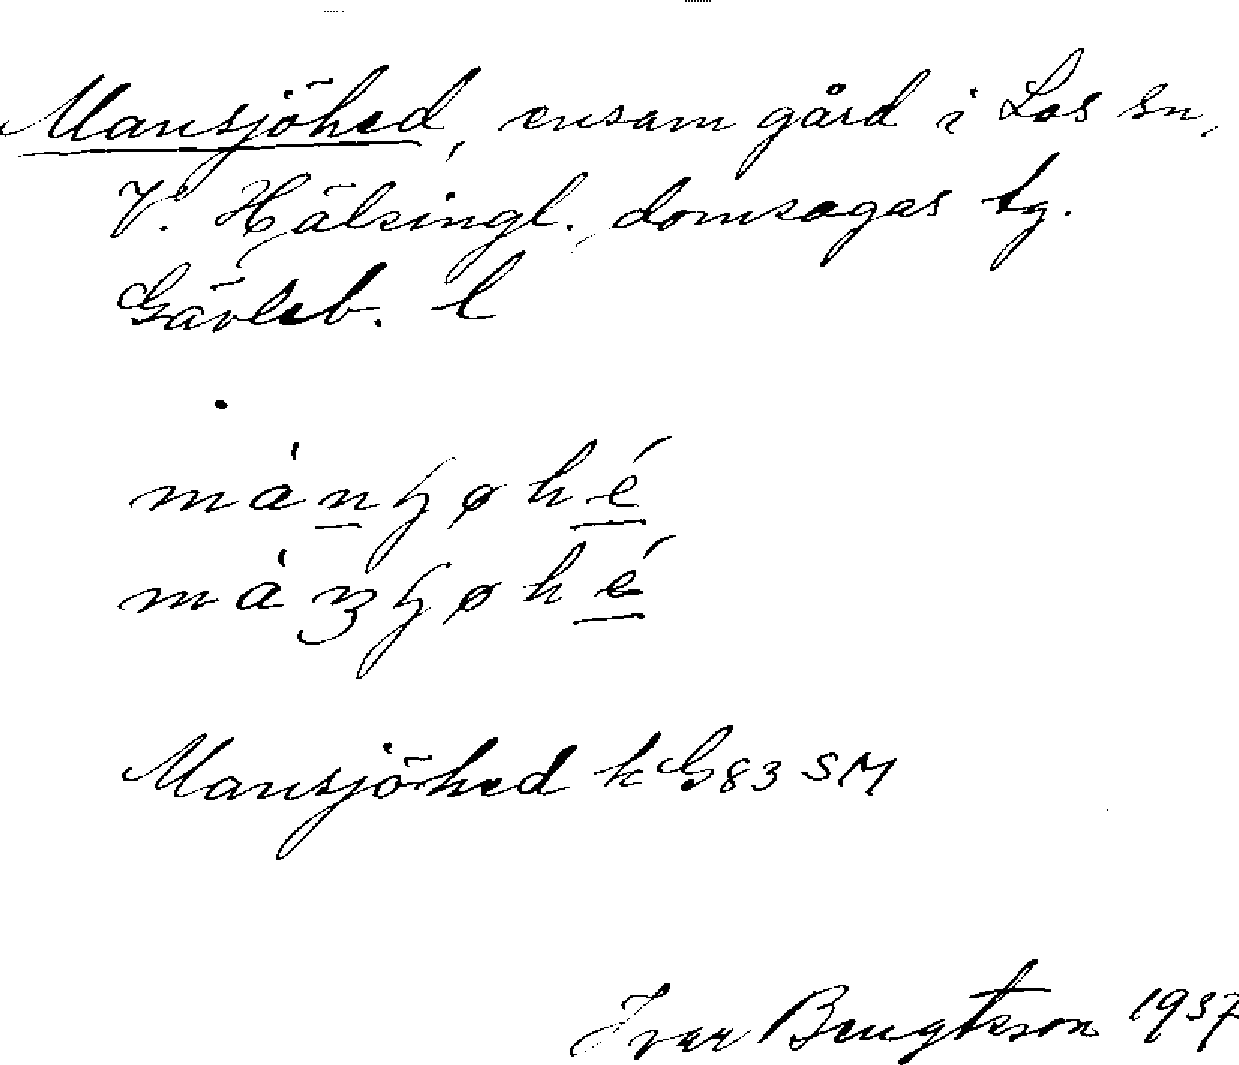 Mansjöhed, ensam gård i Los sn,
V. Hälsingl. domsagas tg.
Gävleb. l
Mansjöhed k G83 SM
Ivar Bengtsson 1937